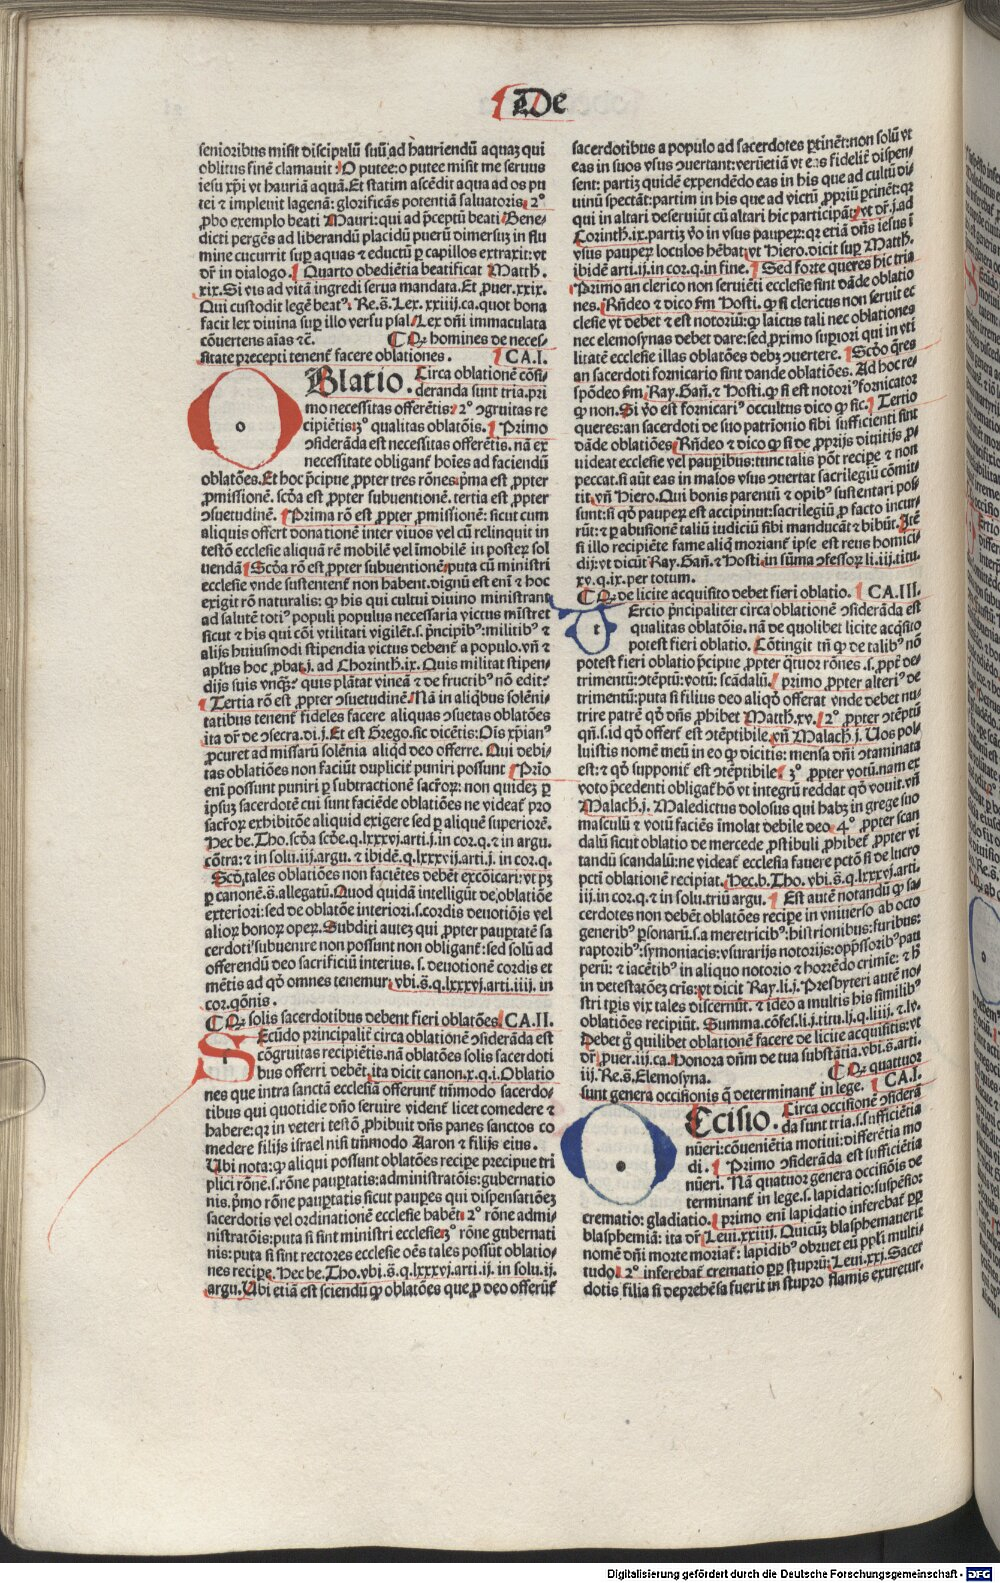 De
senioribus misit discipulū suū ad hauriendū aquaꝫ qui
oblitus finē clamauit: O putee: o putee misit me seruus
iesu xp̄i vt hauriā aquā. Et statim ascēdit aqua ad os pu
tei ⁊ impleuit lagenā: glorificās potentiā saluatoris. 2°
ꝓbo exemplo beati Mauri: qui ad p̄ceptū beati Bene-
dicti pergēs ad liberandū placidū puerū dimersuꝫ in flu
mine cucurrit suꝑ aquas ⁊ eductū ꝑ capillos extraxit: vt
dr̄ in dialogo. Quarto obediētia beatificat Matth̄.
xix. Si vis ad vitā ingredi serua mandata. Et ꝓuer. xxix.
Qui custodit legē beatꝰ. Re. s̄. Lex. xxiiij. ca. quot bona
facit lex diuina suꝑ illo versu psal. Lex dn̄i immaculata
cōuertens aīas ⁊c̄. ¶ Qꝙ homines de neces-
sitate precepti tenent̄ facere oblationes. CA. I.
OBlatio. Circa oblationē cōsi-
deranda sunt tria. pri
mo necessitas offerētis: 2° ꝯgruitas re
cipiētis: 3° qualitas oblatōis. Primo
ꝯsiderāda est necessitas offerētis. nā ex
necessitate obligant̄ hoīes ad faciendū
oblatōes. Et hoc p̄cipue ꝓpter tres rōnes. p̄ma est ꝓpter
ꝓmissionē. scd̄a est ꝓpter subuentionē. tertia est ꝓpter
ꝯsuetudinē. Prima rō est ꝓpter ꝓmissionē: sicut cum
aliquis offert donationē inter viuos vel cū relinquit in
testō ecclesie aliquā rē mobilē vel īmobilē in posteꝝ sol
uendā. Scd̄a rō est ꝓpter subuentionē: puta cū ministri
ecclesie vnde sustentent̄ non habent. dignū est enī ⁊ hoc
exigit rō naturalis: ꝙ his qui cultui diuino ministrant
ad salutē totiꝰ populi populus necessaria victus mīstret
sicut ⁊ his qui cōi vtilitati vigilēt. s. p̄ncipibꝰ: militibꝰ ⁊
alijs huiusmodi stipendia victus debent̄ a populo. vn̄ ⁊
apl̄us hoc ꝓbat. j. ad Chorinth̄. ix. Quis militat stipen-
dijs suis vnq̄ꝫ? quis plātat vineā ⁊ de fructibꝰ nō edit?
Tertia rō est ꝓpter ꝯsuetudinē. Nā in aliqbus solēni-
tatibus tenent̄ fideles facere aliquas ꝯsuetas oblatōes
ita dr̄ de ꝯsecra. di. j. Et est Grego. sic dicētis: Ois xp̄ianꝰ
ꝓcuret ad missarū solēnia aliqd deo offerre. Qui debi-
tas oblatiōes non faciūt duplicit̄ puniri possunt. Prīo
enī possunt puniri ꝑ subtractionē sacroꝝ: non quideꝫ ꝑ
ipsuꝫ sacerdotē cui sunt faciēde oblatiōes ne videat̄ pro
sacroꝝ exhibitōe aliquid exigere sed ꝑ aliquē superiorē.
Hec be. Tho. scd̄a scd̄e. q. lxxxvj. arti. j. in cor. q. ⁊ in argu.
cōtra: ⁊ in solu. iij. argu. ⁊ ibidē. q. lxxxvij. arti. j. in cor. q.
Scd̄o tales oblatiōes non faciētes debēt excōicari: vt pꝫ
ꝑ canonē. s̄. allegatū. Quod quidā intelligūt de oblatiōe
exteriori: sed de oblatōe interiori. s. cordis deuotiōis vel
alioꝝ bonoꝝ opeꝝ. Subditi auteꝫ qui ꝓpter pauꝑtatē sa
cerdoti subuenire non possunt non obligant̄: sed solū ad
offerendū deo sacrificiū interius. s. deuotionē cordis et
mētis ad qd̄ omnes tenemur. vbi. s̄. q. lxxxvj. arti. iiij. in
cor. qōnis.
¶ Qꝙ solis sacerdotibus debent fieri oblatōes. CA. II.
SEcūdo principalit̄ circa oblationē ꝯsiderāda est
cōgruitas recipiētis. nā oblatōes solis sacerdoti
bus offerri debēt. ita dicit canon. x. q. i. Oblatio
nes que intra sanctā ecclesiā offerunt̄ tm̄modo sacerdo-
tibus qui quotidie dn̄o seruire vident̄ licet comedere ⁊
habere: qꝛ in veteri testō ꝓhibuit dn̄s panes sanctos co
medere filijs israel nisi tm̄modo Aaron ⁊ filijs eius.
Ubi nota: ꝙ aliqui possunt oblatōes reciꝑe precipue tri
plici rōne. s. rōne pauꝑtatis: administratōis: gubernatio
nis. p̄mo rōne pauꝑtatis sicut pauꝑes qui dispensatiōeꝫ
sacerdotis vel ordinationē ecclesie habēt. 2° rōne admi-
nistratōis: puta si sint ministri ecclesie. 3° rōne gubernati
nis: puta si sint rectores ecclesie oēs tales possūt oblatio-
nes reciꝑe. Hec be. Tho. vbi. s̄. q. lxxxvj. arti. ij. in solu. ij.
argu. Ubi etiā est sciendū ꝙ oblatōes que ꝓ deo offerūt̄
sacerdotibus a populo ad sacerdotes ꝑtinēt: non solū vt
eas in suos vsus ꝯuertant: verūetiā vt eas fidelit̄ dispen-
sent: partiꝫ quidē expendēdo eas in his que ad cultū di-
uinū spectāt: partim in his que ad victū ꝓpriū ꝑtinēt: qꝛ
qui in altari deseruiūt cū altari hic participāt: vt dr̄. j. ad
Corinth̄. ix. partiꝫ v̄o in vsus pauꝑeꝝ: qꝛ etiā dn̄s iesus ī
vsus pauꝑeꝝ loculos hēbat: vt Hiero. dicit suꝑ Matth̄.
ibidē arti. ij. in cor. q. in fine. Sed forte queres hic tria
Primo an clerico non seruiēti ecclesie sint dāde oblatio
nes. Rn̄deo ⁊ dico fm̄ Hosti. ꝙ si clericus non seruit ec
clesie vt debet ⁊ est notoriū: ꝙ laicus tali nec oblationes
nec elemosynas debet dare: sed ꝓximo suꝑiori qui in vti
litatē ecclesie illas oblatōes debꝫ ꝯuertere. Scd̄o q̄res
an sacerdoti fornicario sint dande oblatiōes. Ad hoc re-
spōdeo fm̄ Ray. Gañ. ⁊ Hosti. ꝙ si est notoriꝰ fornicator
ꝙ non. Si v̄o est fornicariꝰ occultus dico ꝙ sic. Tertio
queres: an sacerdoti de suo patrīonio sibi sufficienti sint
dāde oblatiōes. Rn̄deo ⁊ dico ꝙ si de ꝓprijs diuitijs ꝓ-
uideat ecclesie vel pauꝑibus: tunc talis pōt reciꝑe ⁊ non
peccat. si aūt eas in malos vsus ꝯuertat sacrilegiū cōmit
tit. vn̄ Hiero. Qui bonis parentū ⁊ opibꝰ sustentari pos
sunt: si qd̄ pauꝑeꝝ est accipiunt: sacrilegiū ꝓ facto incur-
rūt: ⁊ ꝑ abusionē taliū iudiciū sibi manducāt ⁊ bibūt. Itē
si illo recipiēte fame aliq moriant̄ ipse est reus homici-
dij: vt dicūt Ray. Gañ. ⁊ Hosti. in sūma ꝯfessoꝝ li. iij. titu.
xv. q. ix. per totum.
¶ Qꝙ de licite acquisito debet fieri oblatio. CA. III.
TErcio p̄ncipaliter circa oblationē ꝯsiderāda est
qualitas oblatōis. nā de quolibet licite acq̄sito
potest fieri oblatio. Cōtingit tn̄ ꝙ de talibꝰ nō
potest fieri oblatio p̄cipue ꝓpter q̄tuor rōnes. s. ꝓpt̄ de-
trimentū: ꝯtēptū: votū: scādalū. primo ꝓpter alteriꝰ de
trimentū: puta si filius deo aliqd̄ offerat vnde debet nu-
trire patrē qd̄ dn̄s ꝓhibet Matth̄. xv. 2° ꝓpter ꝯtēptū
qn̄. s. id qd̄ offert̄ est ꝯtēptibile. vn̄ Malach̄. j. Uos pol-
luistis nomē meū in eo ꝙ dicitis: mensa dn̄i ꝯtaminata
est: ⁊ qd̄ supponit̄ est ꝯtēptibile. 3° ꝓpter votū. nam ex
voto p̄cedenti obligat̄ hō vt integrū reddat qd̄ vouit. vn̄
Malach̄. j. Maledictus dolosus qui habꝫ in grege suo
masculū ⁊ votū faciēs īmolat debile deo. 4° ꝓpter scan
dalū sicut oblatio de mercede ꝓstibuli ꝓhibet̄ ꝓpter vi
tandū scandalū: ne videat̄ ecclesia fauere pctō si de lucro
pcti oblationē recipiat. Hec. b. Tho. vbi. s̄. q. lxxxvj. arti.
iij. in cor. q. ⁊ in solu. triū argu. Est autē notandū ꝙ sa-
cerdotes non debēt oblatōes reciꝑe in vniuerso ab octo
generibꝰ ꝑsonarū. s. a meretricibꝰ: histrionibus: furibus:
raptoribꝰ: symoniacis: vsurarijs notorijs: opp̄ssoribꝰ pau
perū: ⁊ iacētibꝰ in aliquo notorio ⁊ horrēdo crimīe: ⁊ h̄
in detestatōeꝫ cris: vt dicit Ray. li. j. Presbyteri autē no-
stri tp̄is vix tales discernūt. ⁊ ideo a multis his similibꝰ
oblatiōes recipiūt. Summa. cōfes. li. j. titu. lj. q. liiij. ⁊ lv.
Debet g̊ quilibet oblationē facere de licite acquisitis: vt
dr̄ ꝓuer. iij. ca. Honora dn̄m de tua substātia. vbi. s̄. arti.
iij. Re. s̄. Elemosyna. ¶ Qꝙ quattuor
sunt genera occisionis q̄ determinant̄ in lege. CA. I.
OCcisio. Circa occisionē ꝯsidera
da sunt tria. s. sufficiētia
nūeri: cōueniētia motiui: differētia mo
di. Primo ꝯsiderāda est sufficiētia
nūeri. Nā quatuor genera occisiōis de
terminant̄ in lege. s. lapidatio: suspēsio:
crematio: gladiatio. primo enī lapidatio inferebat̄ ꝓpꝑ
blasphemiā: ita dr̄. Leui. xxiiij. Quicūꝫ blasphemauerit
nomē dn̄i morte moriat̄: lapidibꝰ obruet eū ppl̄i multi-
tudo. 2° inferebat̄ crematio ꝓpꝑ stuprū: Leui. xxj. Sacer
dotis filia si deprehēsa fuerit in stupro flamis exuretur.
Digitalisierung gefördert durch die Deutsche Forschungsgemeinschaft - DFG